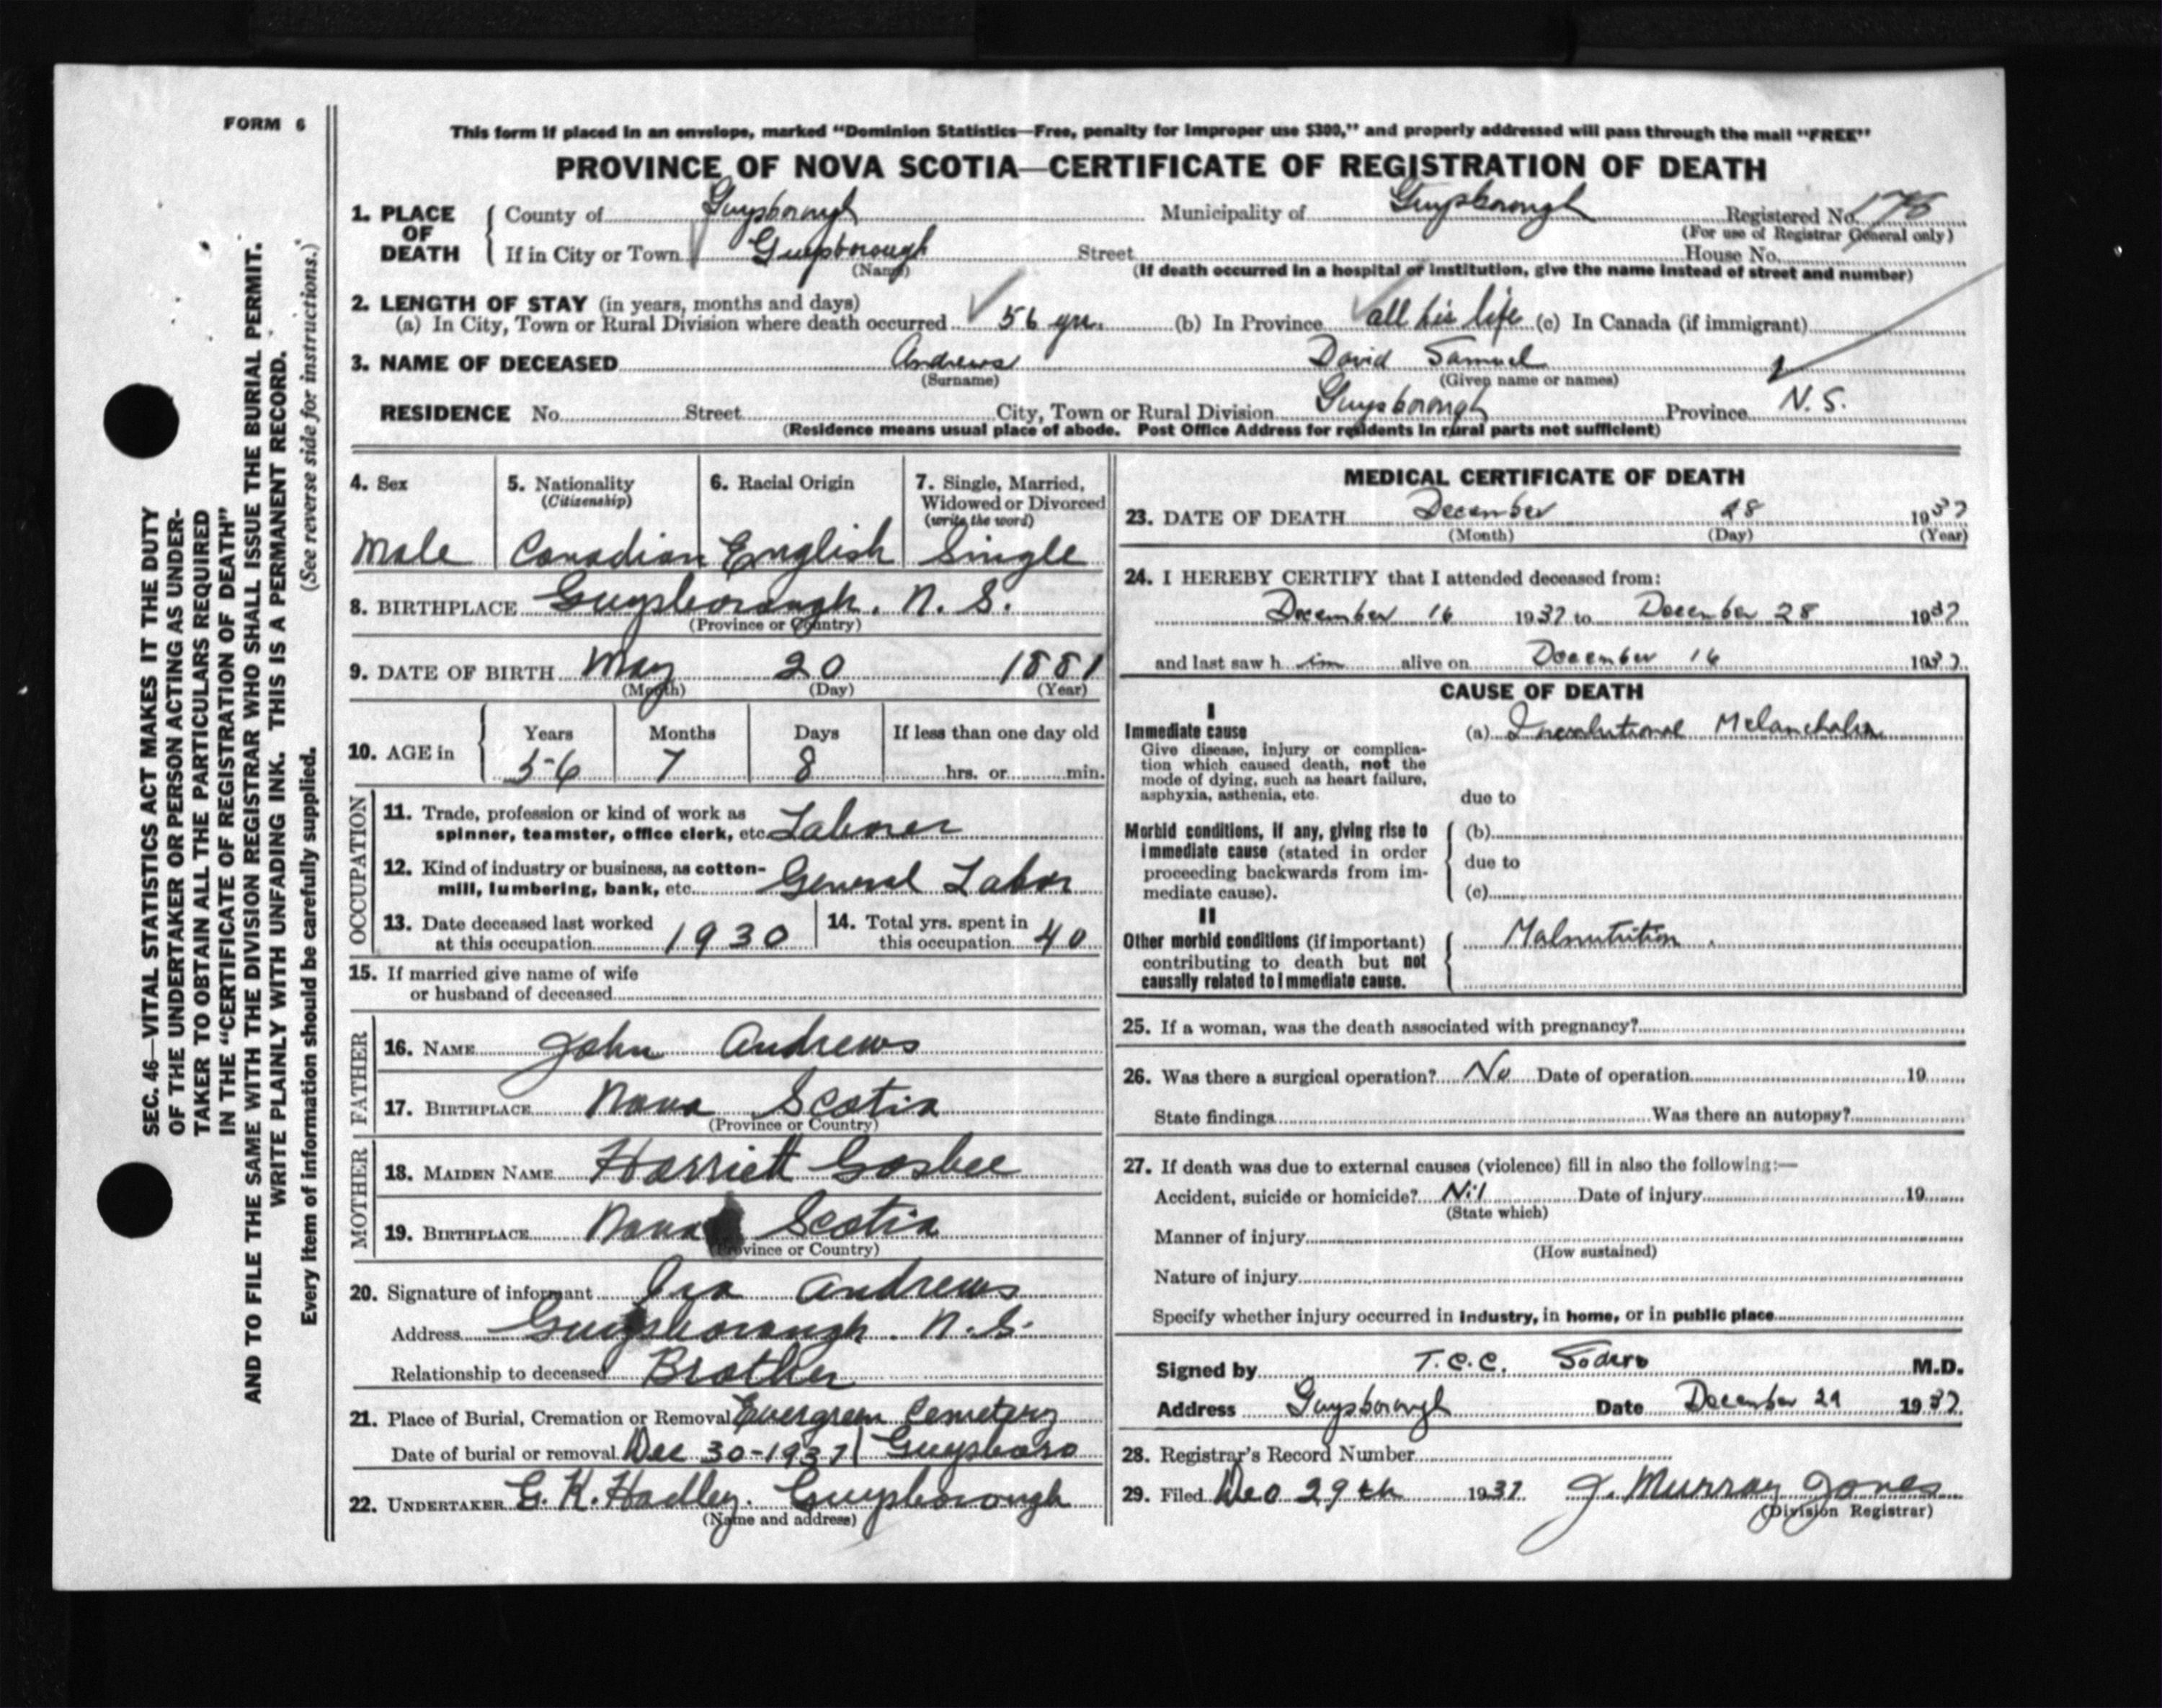 FORM 6
This form if placed in an envelope, marked "Dominion Statistics—Free, penalty for improper use $300," and properly addressed will pass through the mail "FREE"
PROVINCE OF NOVA SCOTIA—CERTIFICATE OF REGISTRATION OF DEATH
1. PLACE OF DEATH County of Guysborough Municipality of Guysborough Registered No.
(For use of Registrar General only)
If in City or Town Guysborough Street House No.
(Name) (If death occurred in a hospital or institution, give the name instead of street and number)
2. LENGTH OF STAY (in years, months and days)
(a) In City, Town or Rural Division where death occurred 56 yrs. (b) In Province all his life (c) In Canada (if immigrant)
3. NAME OF DECEASED Andrews David Samuel
(Surname) (Given name or names)
RESIDENCE No. Street City, Town or Rural Division Guysborough Province N.S.
(Residence means usual place of abode. Post Office Address for residents in rural parts not sufficient)
4. Sex 5. Nationality (Citizenship) 6. Racial Origin 7. Single, Married, Widowed or Divorced (write the word)
Male Canadian English Single
8. BIRTHPLACE Guysborough. N. S.
(Province or Country)
9. DATE OF BIRTH May 20 1881
(Month) (Day) (Year)
10. AGE in Years Months Days If less than one day old
56 7 8 hrs. or min.
OCCUPATION
11. Trade, profession or kind of work as
spinner, teamster, office clerk, etc. Laborer
12. Kind of industry or business, as cotton-
mill, lumbering, bank, etc. General Labor
13. Date deceased last worked
at this occupation 1930
14. Total yrs. spent in
this occupation 40
15. If married give name of wife
or husband of deceased
FATHER
16. NAME John Andrews
17. BIRTHPLACE Nova Scotia
(Province or Country)
MOTHER
18. MAIDEN NAME Harriett Gosbee
19. BIRTHPLACE Nova Scotia
(Province or Country)
20. Signature of informant Ira Andrews
Address Guysborough. N.S.
Relationship to deceased Brother
21. Place of Burial, Cremation or Removal Evergreen Cemetery
Date of burial or removal Dec 30-1937 Guysboro
22. UNDERTAKER G. K. Hadley. Guysborough
(Name and address)
MEDICAL CERTIFICATE OF DEATH
23. DATE OF DEATH December 28 1937
(Month) (Day) (Year)
24. I HEREBY CERTIFY that I attended deceased from:
December 16 1937 to December 28 1937
and last saw h im alive on December 16 1937
CAUSE OF DEATH
I
Immediate cause (a) Involutional Melancholia
Give disease, injury or complica-
tion which caused death, not the
mode of dying, such as heart failure,
asphyxia, asthenia, etc.
due to
Morbid conditions, if any, giving rise to (b)
immediate cause (stated in order due to
proceeding backwards from im-
mediate cause). (c)
II
Other morbid conditions (if important) Malnutrition.
contributing to death but not
causally related to immediate cause.
25. If a woman, was the death associated with pregnancy?
26. Was there a surgical operation? No Date of operation 19
State findings Was there an autopsy?
27. If death was due to external causes (violence) fill in also the following:—
Accident, suicide or homicide? Nil Date of injury 19
(State which)
Manner of injury
(How sustained)
Nature of injury
Specify whether injury occurred in industry, in home, or in public place
Signed by T.C.C. Sodero M.D.
Address Guysborough Date December 29 1937
28. Registrar's Record Number
29. Filed Dec 29th 1937. J. Murray Jones
(Division Registrar)
SEC. 46—VITAL STATISTICS ACT MAKES IT THE DUTY
OF THE UNDERTAKER OR PERSON ACTING AS UNDER-
TAKER TO OBTAIN ALL THE PARTICULARS REQUIRED
IN THE "CERTIFICATE OF REGISTRATION OF DEATH"
AND TO FILE THE SAME WITH THE DIVISION REGISTRAR WHO SHALL ISSUE THE BURIAL PERMIT.
WRITE PLAINLY WITH UNFADING INK. THIS IS A PERMANENT RECORD.
Every item of information should be carefully supplied. (See reverse side for instructions.)